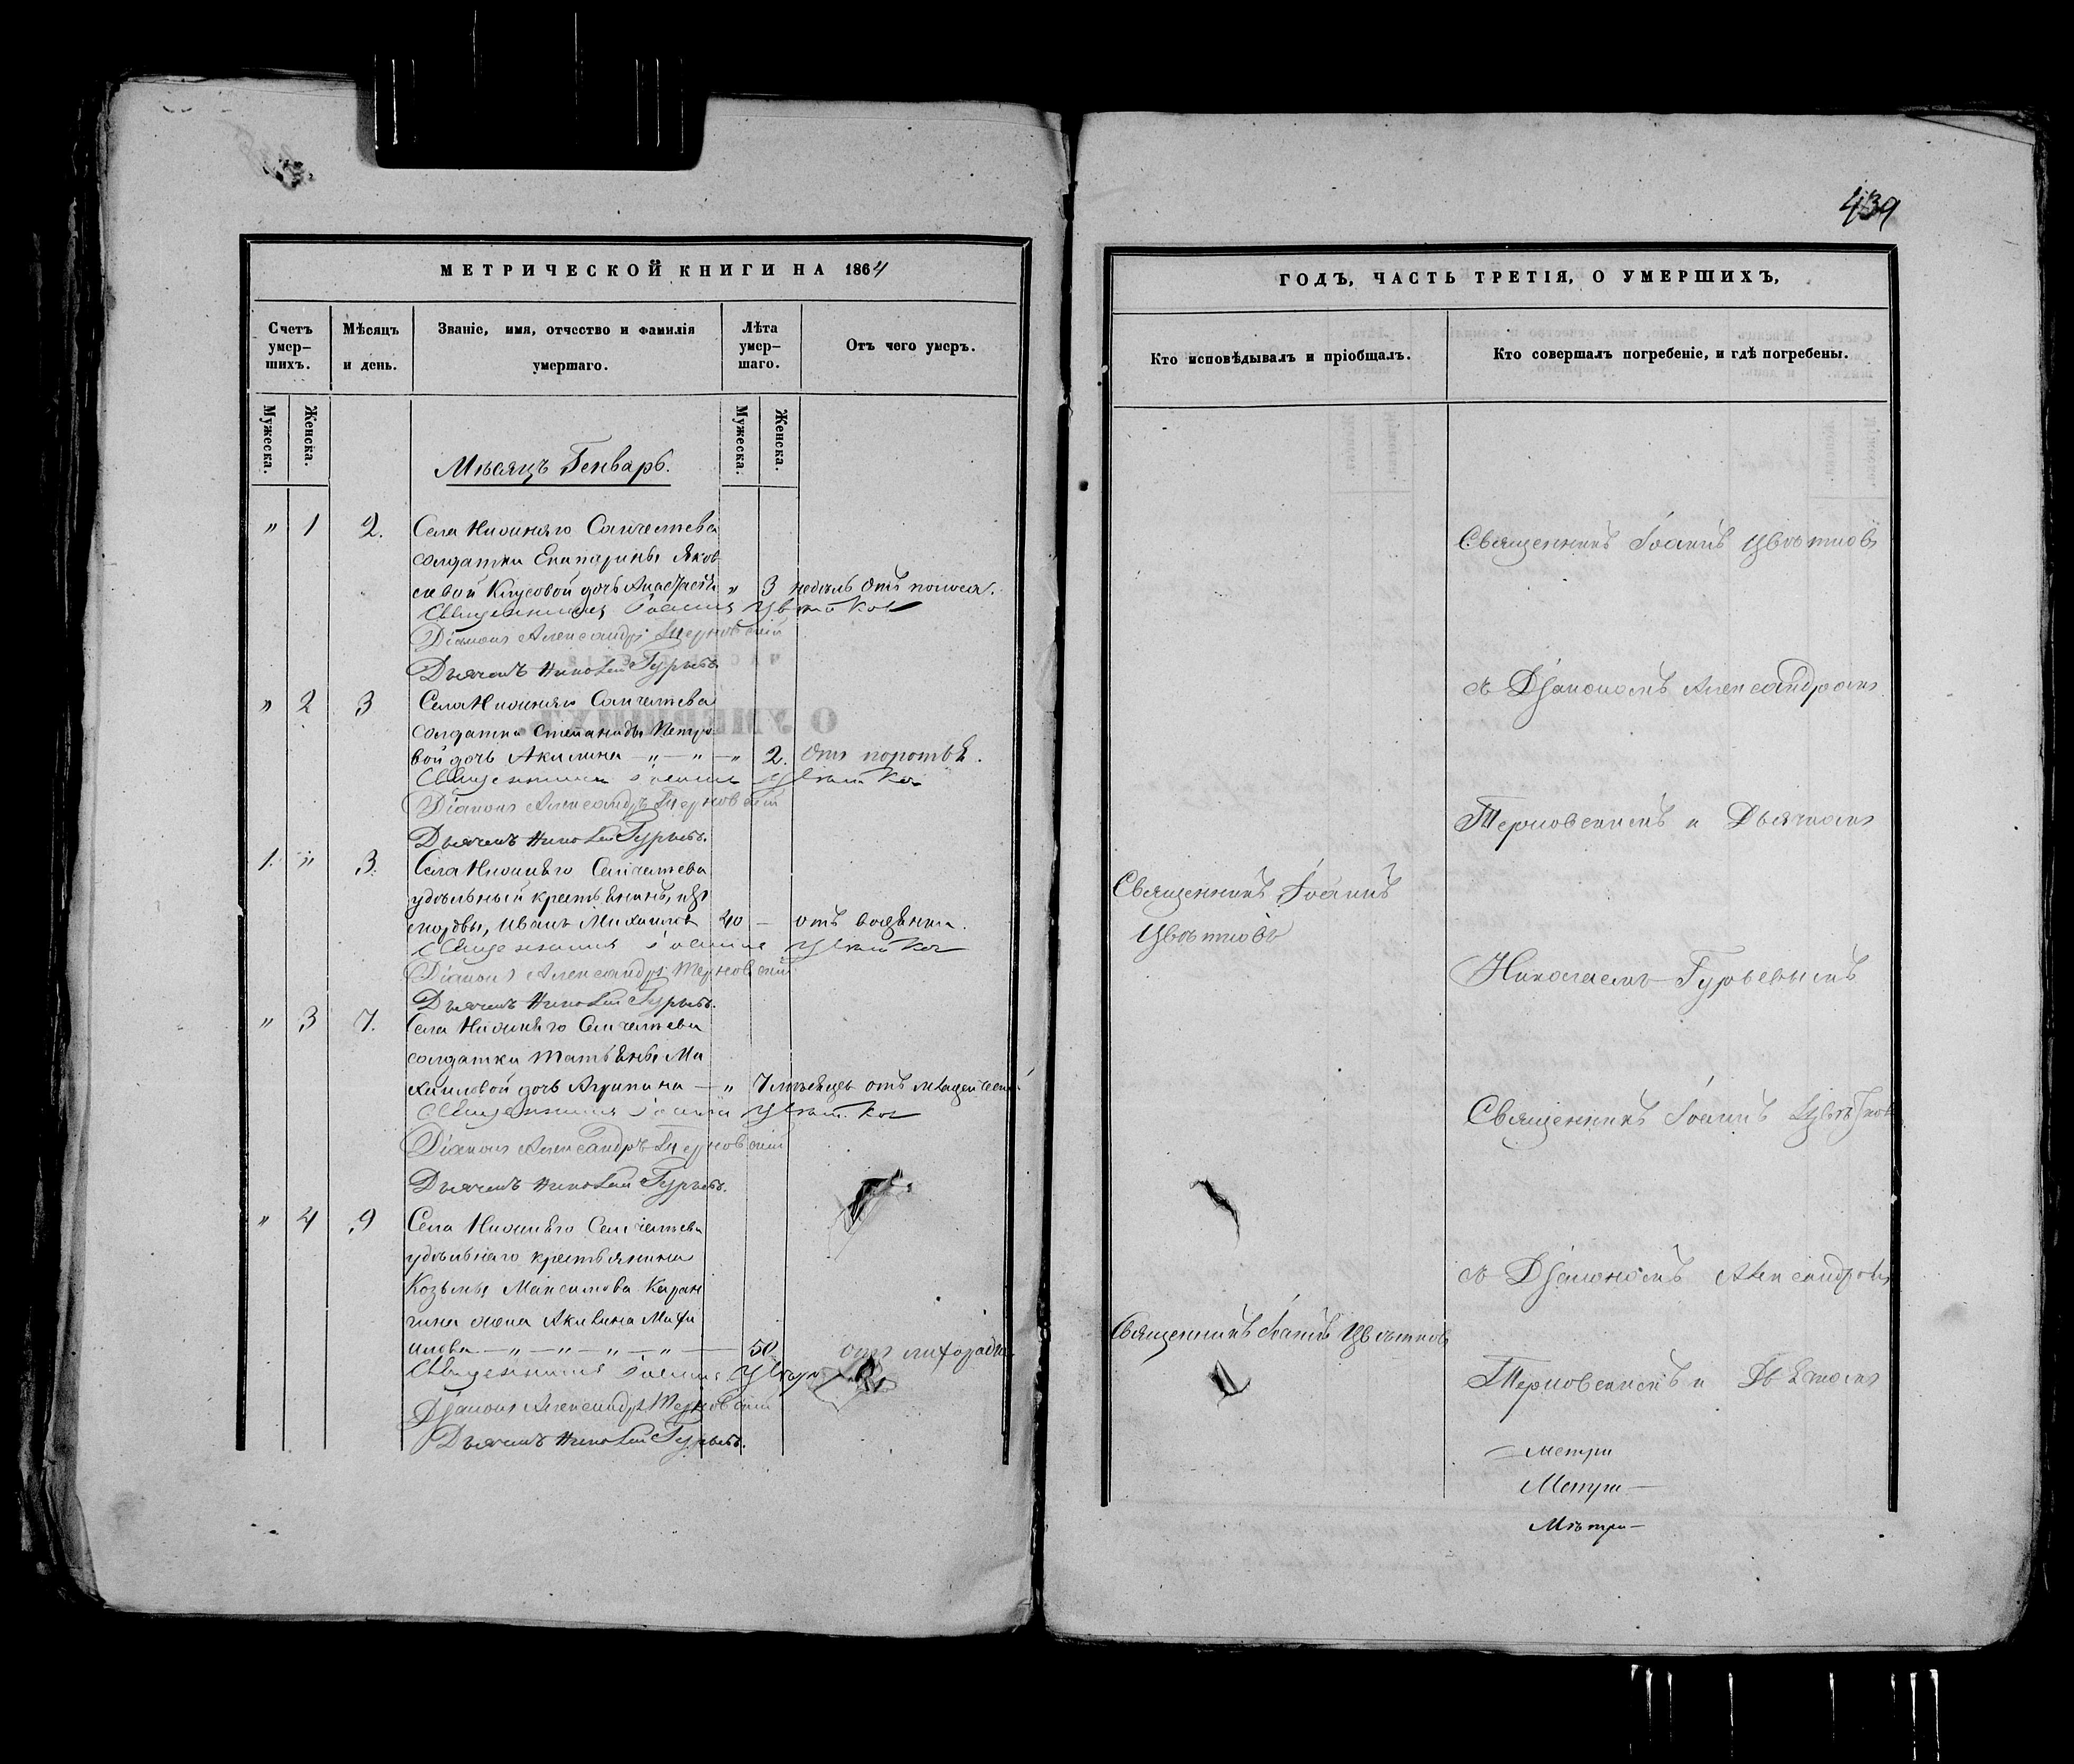 439
МЕТРИЧЕСКОЙ КНИГИ НА 1864
Счетъ умер-
шихъ.
Мѣсяцъ
и день.
Званіе, имя, отчество и фамилія
умершаго.
Лѣта
умер-
шаго.
Отъ чего умеръ.
Мужеска.
Женска.
Мужеска.
Женска.
Мѣсяцъ Генварь.
" 1 2. Села Нижняго Санчелѣева
солдатки Екатерины Яков
левой дочь Анастасія " 3 недѣль Отъ поноса.
Священникъ Іоаннъ Цвѣтков
Діаконъ Александръ Терновскій
Дьячекъ Николай Гурьевъ
" 2 3 Села Нижняго Санчелѣева
солдатки Степаниды Петро
вой дочь Акилина — " — " — " 2. Отъ
Священникъ Іоаннъ Цвѣтков
Діаконъ Александръ Терновскій
Дьячекъ Николай Гурьевъ.
1. " 3. Села Нижняго Санчелѣева
удѣльный крестьянинъ, изъ
мордвы, Иванъ Михайловъ 40 — отъ
Священникъ Іоаннъ Цвѣтков
Діаконъ Александръ Терновскій
Дьячекъ Николай Гурьевъ.
" 3 7. Села Нижняго Санчелѣева
солдатки Татьяны Ми
хайловой дочь Агрипина — " 7 мѣсяцъ отъ
Священникъ Іоаннъ Цвѣтков
Діаконъ Александръ Терновскій
Дьячекъ Николай Гурьевъ.
" 4 9 Села Нижняго Санчелѣева
удѣльнаго крестьянина
Козьмы Максимова Каран
гина жена Акилина
— " — " — " — " — 50 отъ лихорадки
Священникъ Іоаннъ
Діаконъ Александръ Терновскій
Дьячекъ Николай Гурьевъ.
ГОДЪ, ЧАСТЬ ТРЕТІЯ, О УМЕРШИХЪ,
Кто исповѣдывалъ и пріобщалъ.
Кто совершалъ погребеніе, и гдѣ погребены.
Священникъ Іоаннъ Цвѣтковъ
съ Діакономъ Александромъ
Терновскимъ и Дьячкомъ
Священникъ Іоаннъ
Цвѣтковъ
Николаемъ Гурьевымъ
Священникъ Іоаннъ Цвѣтковъ
съ Діакономъ Александромъ
Священникъ Іоаннъ Цвѣтковъ
Терновскимъ и Дьячкомъ
— метри
Метри —
Метри —